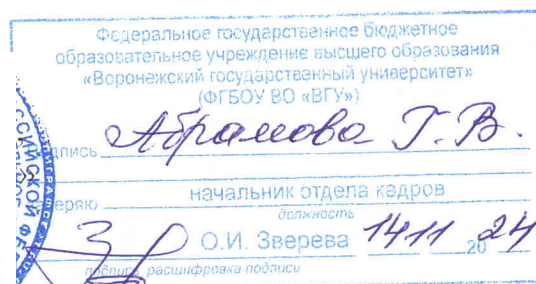 Федеральное государственное бюджетное
образовательное учреждение высшего образования
«Воронежский государственный университет»
(ФГБОУ ВО «ВГУ»)
дпись Абрамова Г. В.
начальник отдела кадров
должность
О.И. Зверева 14 11 20 24
подпись, расшифровка подписи